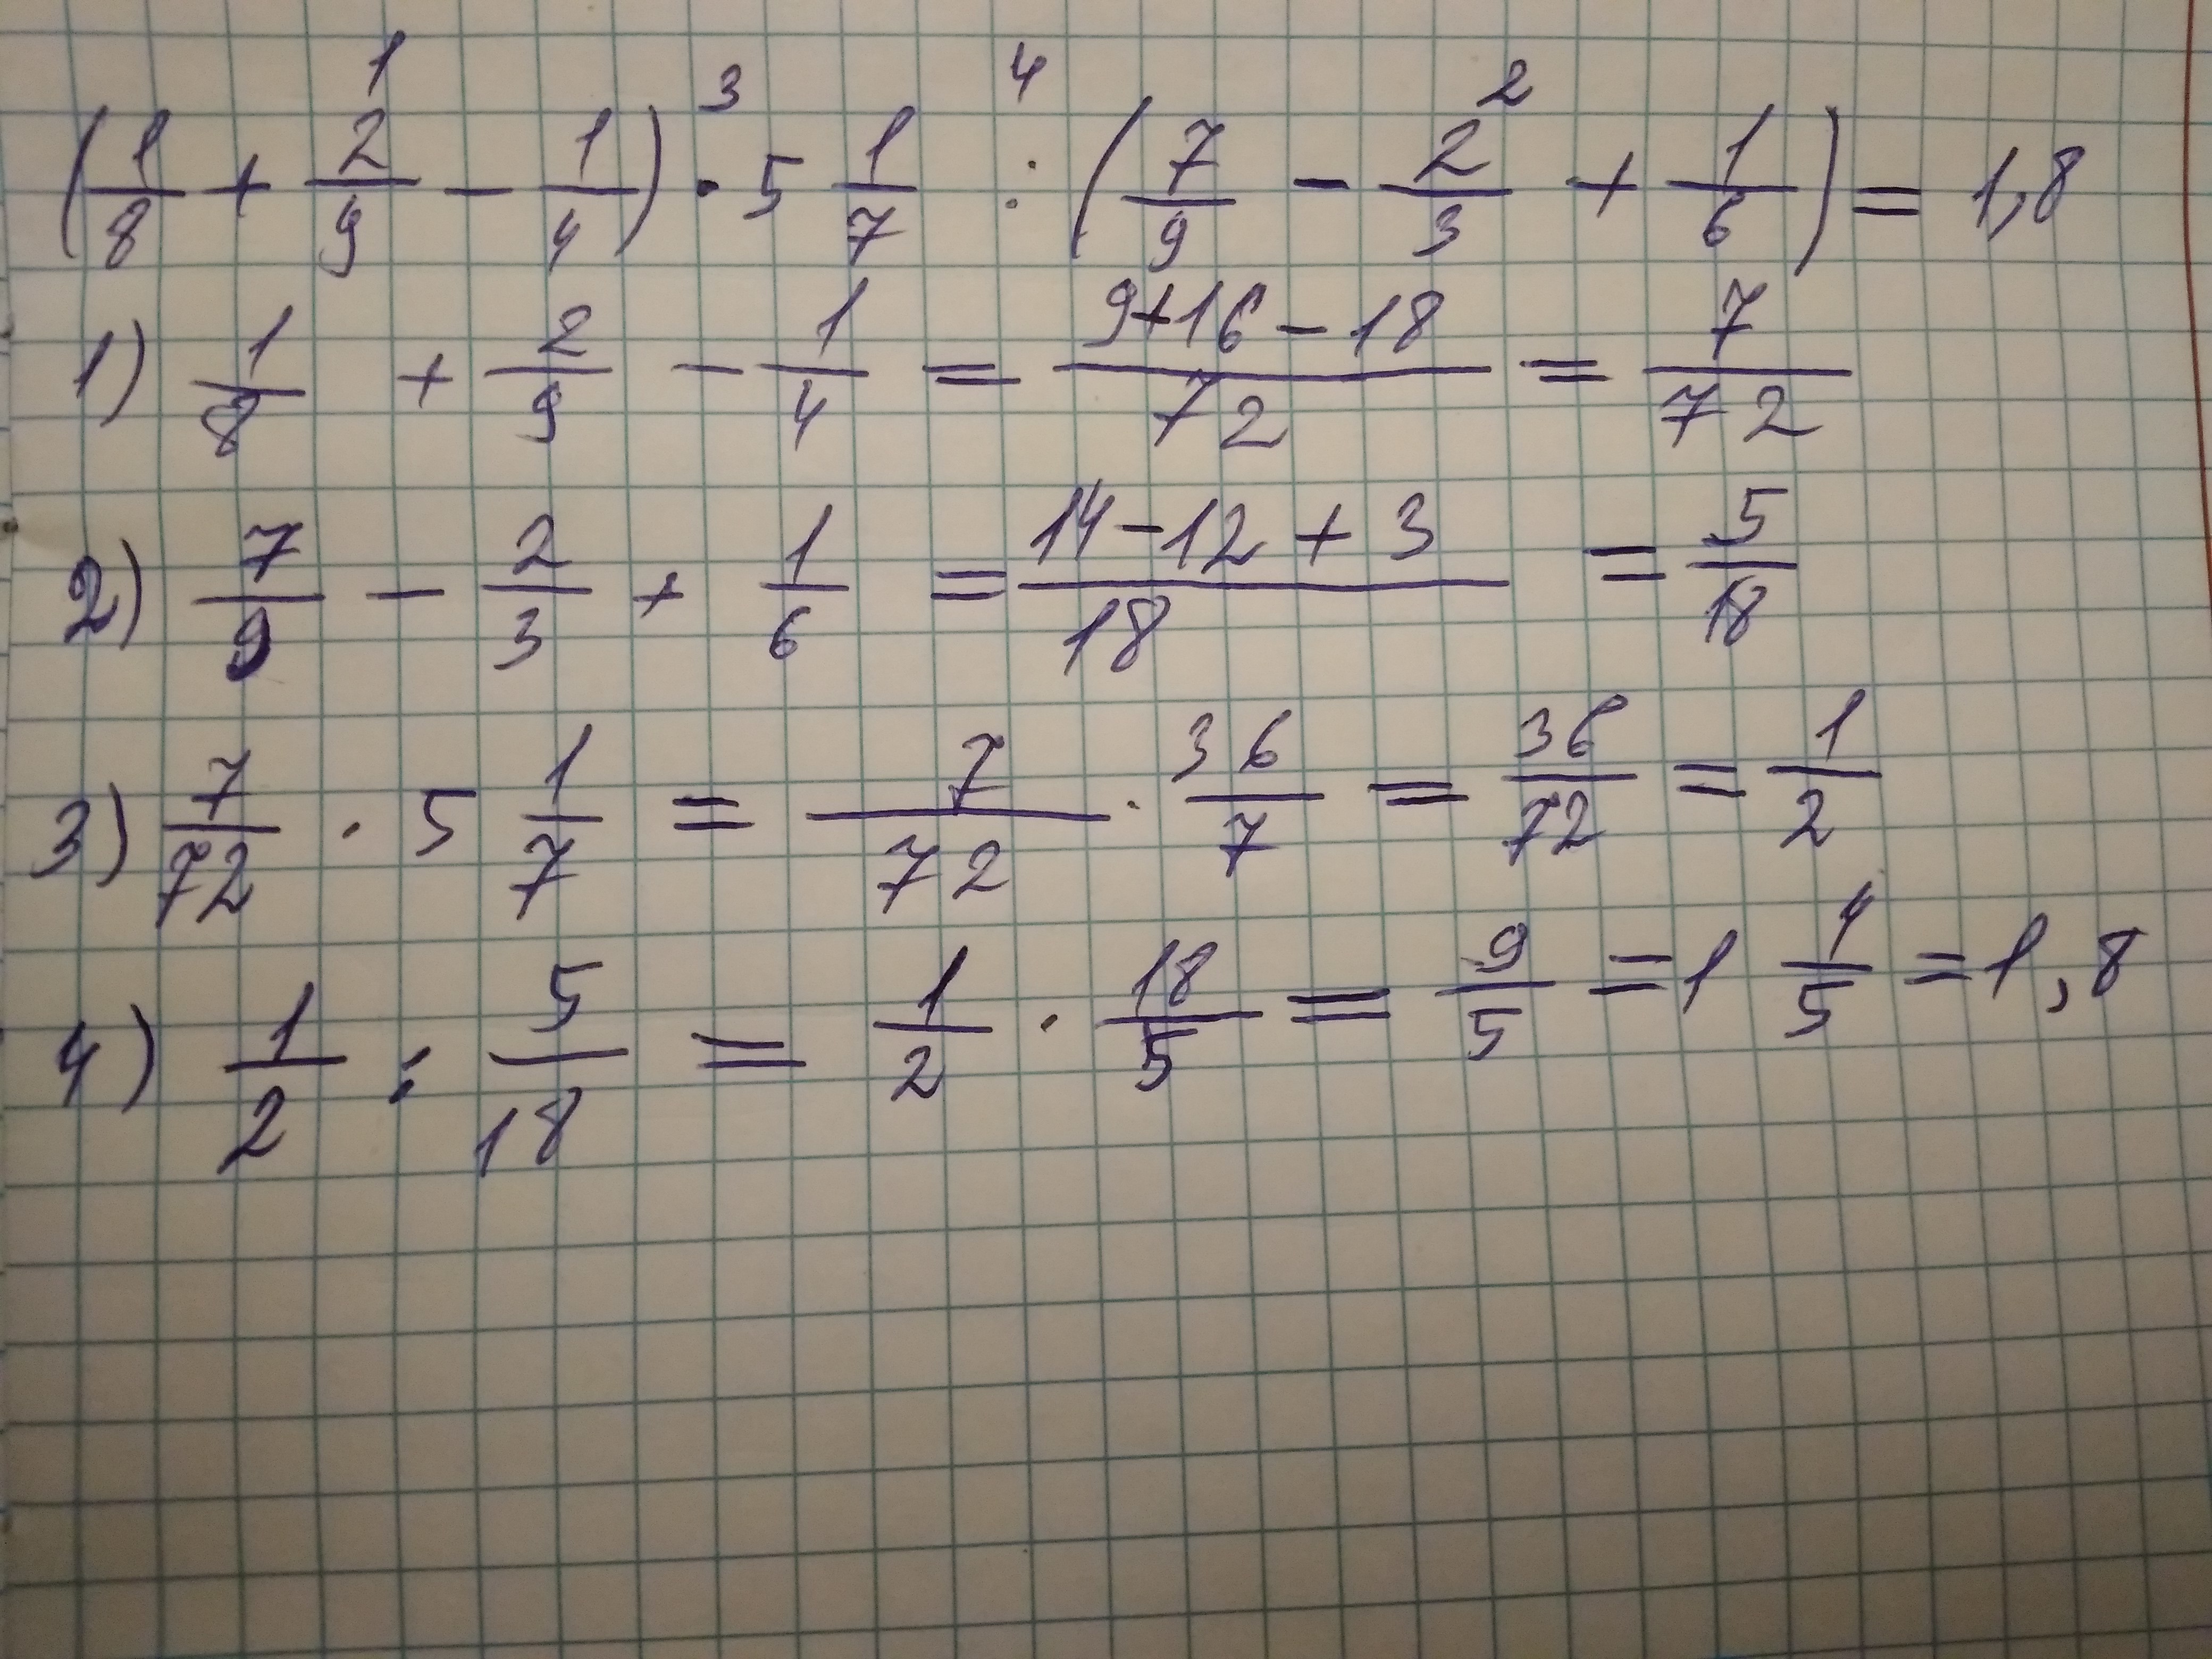 (1/8 + 2/9 - 1/4) · 5 1/7 : (7/9 - 2/3 + 1/6) = 1,8
1 3 4 2
1) 1/8 + 2/9 - 1/4 = (9+16-18)/72 = 7/72
2) 7/9 - 2/3 + 1/6 = (14-12+3)/18 = 5/18
3) 7/72 · 5 1/7 = 7/72 · 36/7 = 36/72 = 1/2
4) 1/2 : 5/18 = 1/2 · 18/5 = 9/5 = 1 4/5 = 1,8